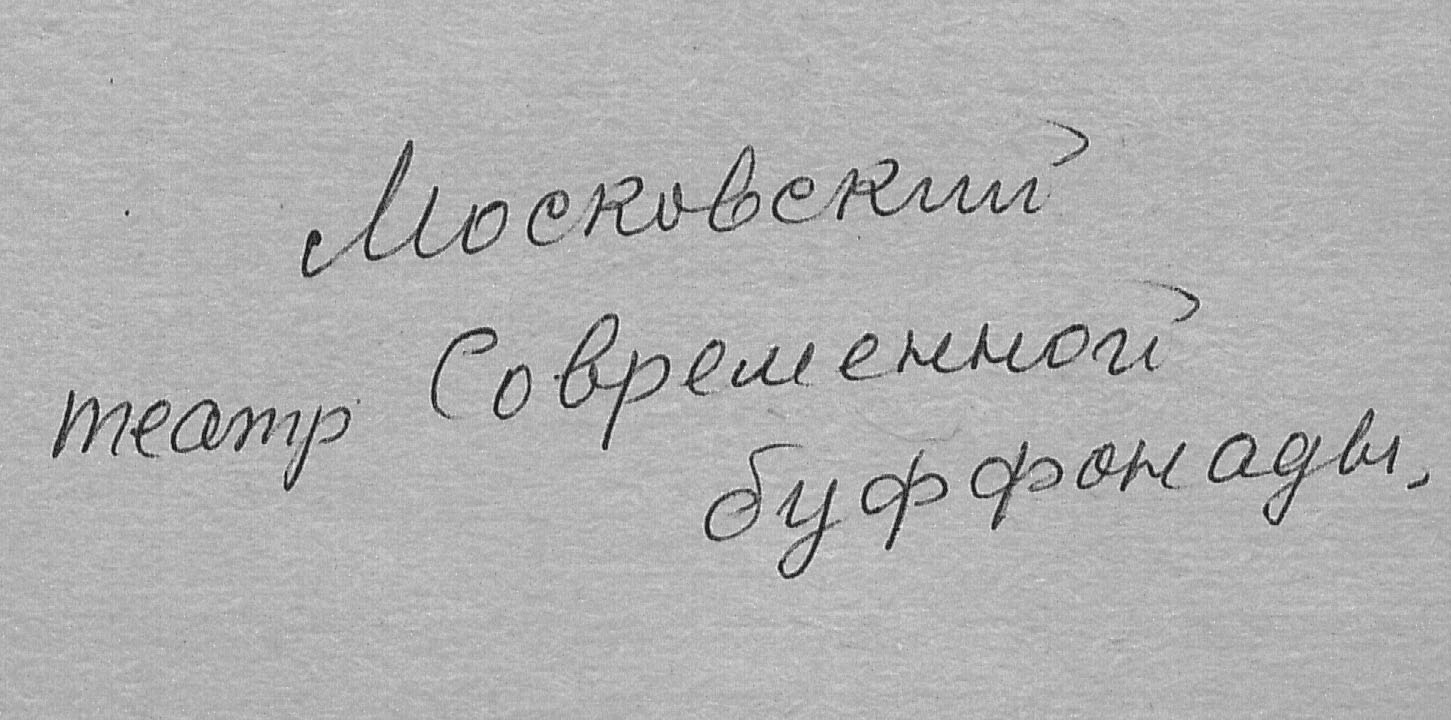 Московский
театр Современной
буффонады,